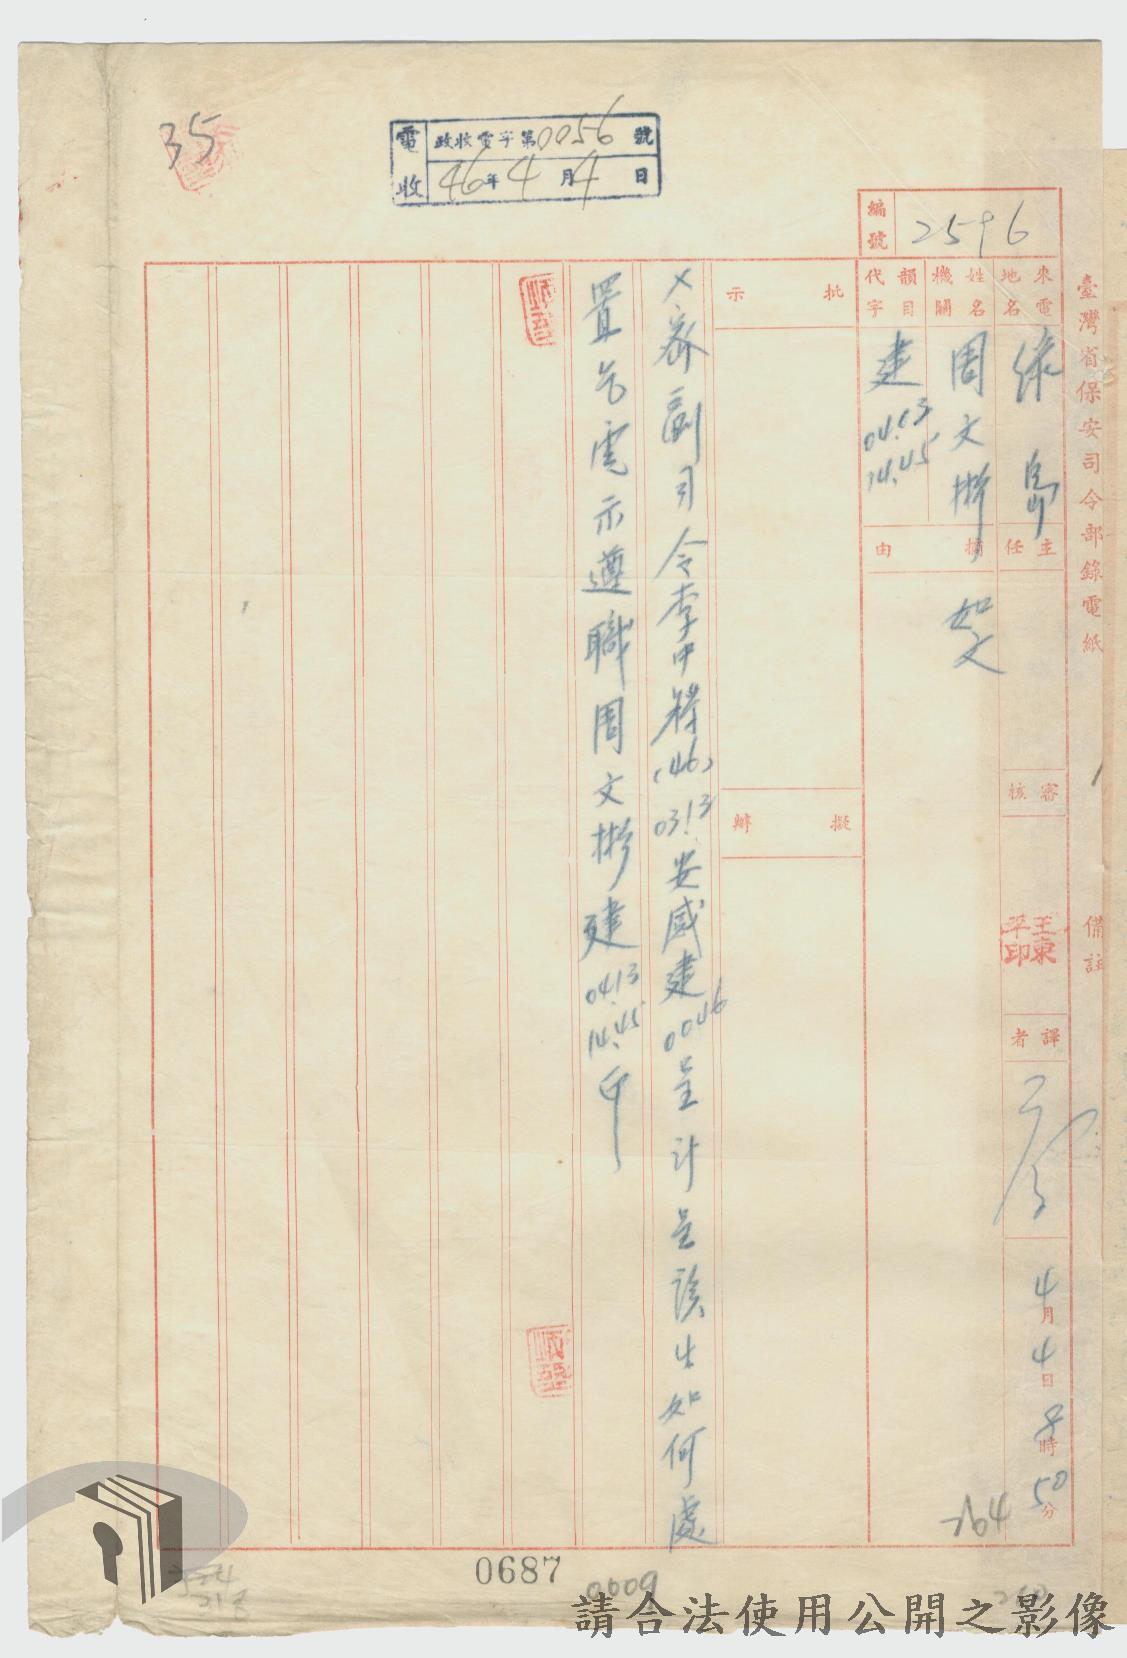 35
電收
政收電字第0056號
46年4月4日
編號 2596
臺灣省保安司令部錄電紙
備註
來電地名 綠島
姓名機關 周文彬
韻目代字 建 04.03 14.45
主任
審核
王東平印
譯者
4月4日8時50分
摘由 如文
批示
擬辦
副司令李中將(46)0313安感建0046呈計呈該生如何處
置乞電示遵職周文彬建0413 14.45印
264
0687
0009
請合法使用公開之影像